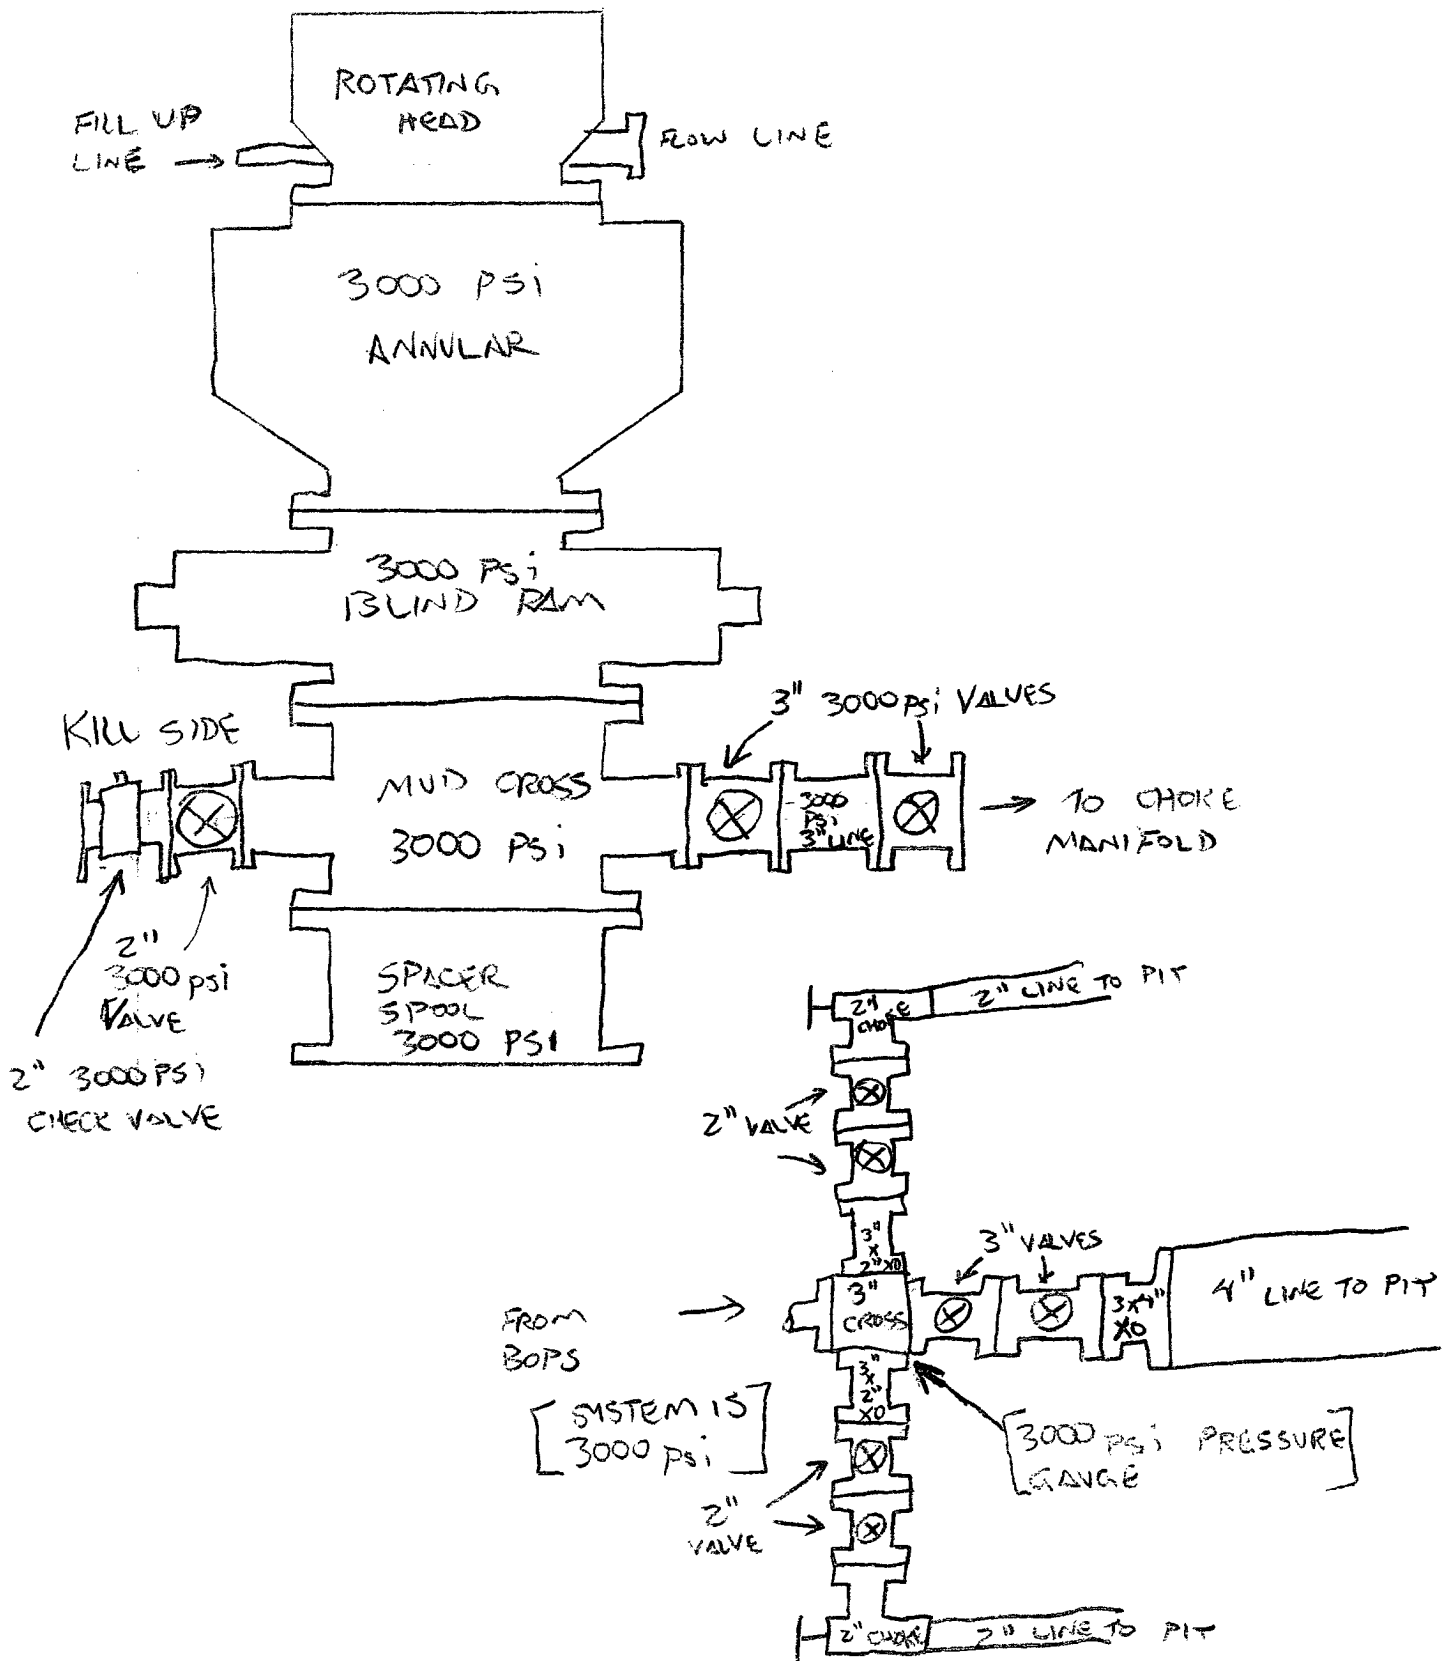 ROTATING
HEAD
FILL UP
LINE
FLOW LINE
3000 PSi
ANNULAR
3000 PSi
BLIND RAM
3" 3000 psi VALVES
KILL SIDE
MUD CROSS
3000 PSi
3000
PSi
3" LINE
TO CHOKE
MANIFOLD
2"
3000 psi
VALVE
2" 3000 PSi
CHECK VALVE
SPACER
SPOOL
3000 PSI
2"
CHOKE
2" LINE TO PIT
2" VALVE
3"
X
2" XO
3" VALVES
3"
CROSS
3x4"
XO
4" LINE TO PIT
FROM
BOPS
3"
X
2"
XO
[SYSTEM IS
3000 psi]
[3000 psi PRESSURE
GAUGE]
2"
VALVE
2" CHOKE
2" LINE TO PIT